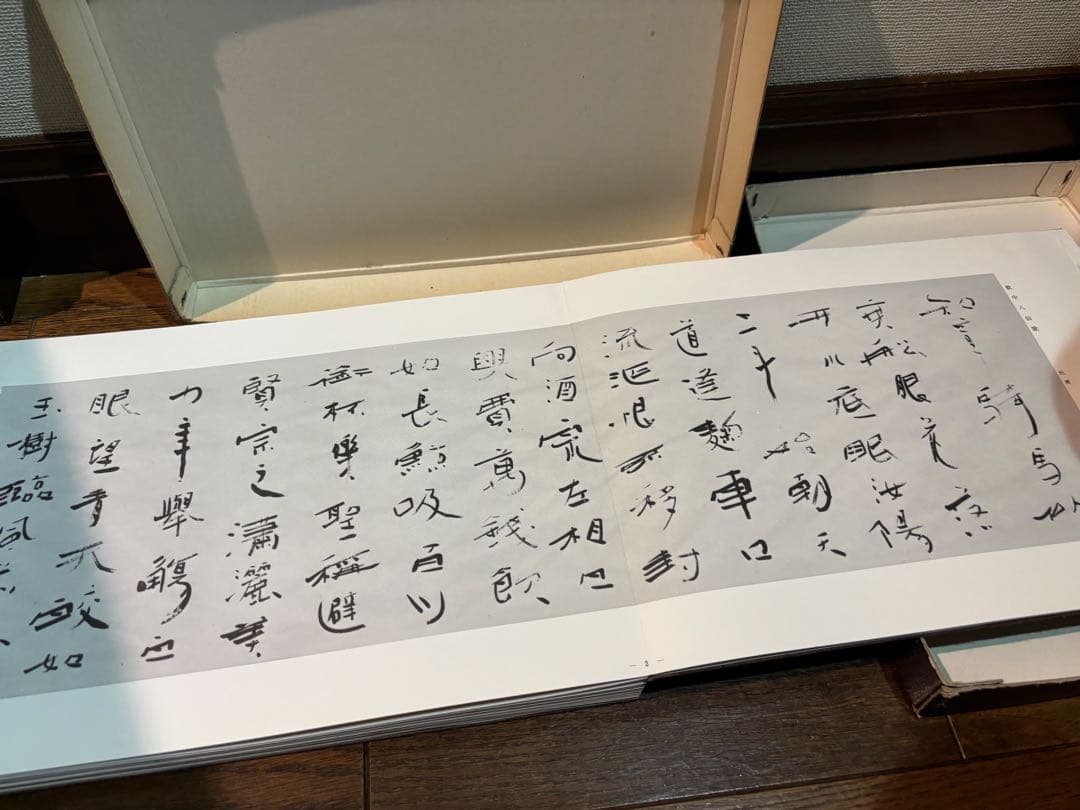 飲中八仙歌
知章騎馬似
乘船眼花落
井水底眠汝陽
三斗始朝天
道逢麴車口
流涎恨不移封
向酒泉左相日
興費萬錢飲
如長鯨吸百川
銜杯樂聖稱避
賢宗之瀟灑美
少年舉觴白
眼望青天皎如
玉樹臨風前
— 2 —